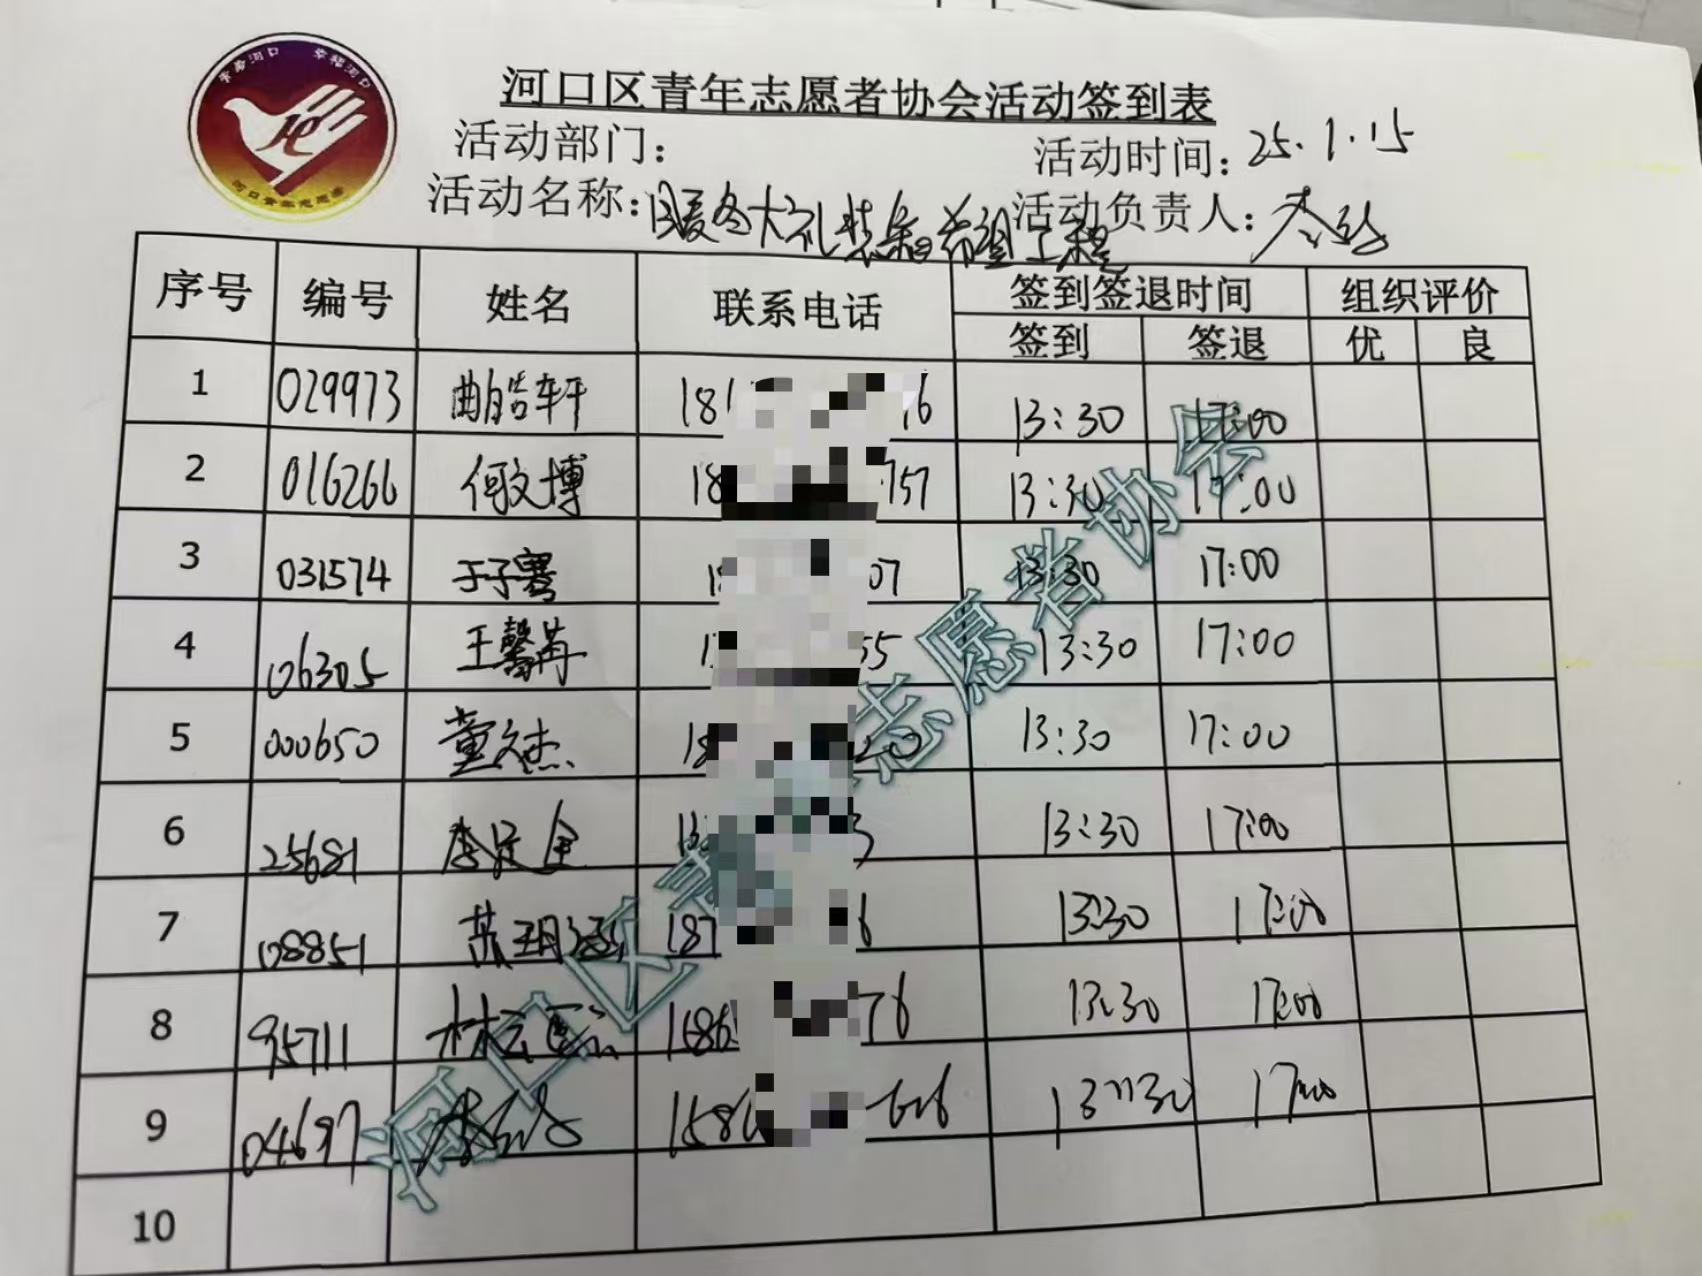 河口区青年志愿者协会活动签到表
活动部门：
活动时间：25.1.15
活动名称：暖冬大礼装箱希望工程
活动负责人：
序号 编号 姓名 联系电话 签到签退时间 组织评价
签到 签退 优 良
1 029973 曲皓轩 181 6 13:30 17:00
2 016266 何文博 18 757 13:30 17:00
3 031574 于子骞 18 07 13:30 17:00
4 06305 王馨苒 1 55 13:30 17:00
5 000650 董文杰 18 20 13:30 17:00
6 25681 李定金 13 3 13:30 17:00
7 08851 苏 187 6 13:30 17:00
8 95711 林云 1686 76 13:30 17:00
9 04697 1586 626 13:30 17:00
10
河口区青年志愿者协会
河口青年志愿者
幸福河口